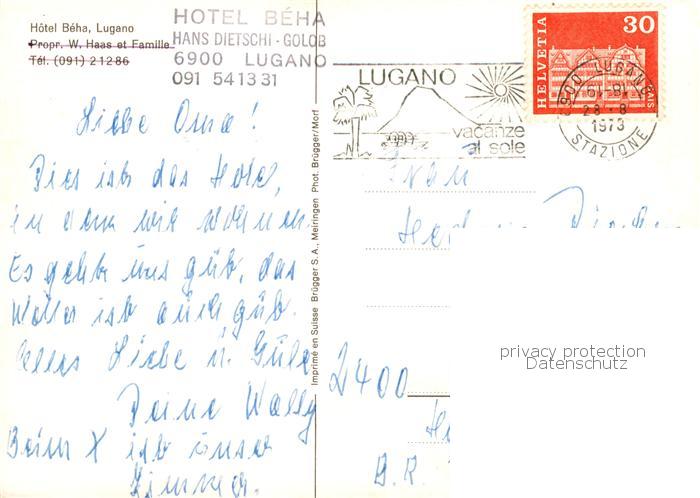 Hôtel Béha, Lugano
Propr. W. Haas et Famille
Tél. (091) 21286
HOTEL BÉHA
HANS DIETSCHI - GOLOB
6900 LUGANO
091 541331
LUGANO
vacanze
al sole
HELVETIA 30
6900 LUGANO
28.-8
1973
STAZIONE
Imprimé en Suisse Brügger S.A., Meiringen Phot. Brügger/Morf
Liebe Oma!
Dies ist das Hotel,
in dem wir wohnen.
Es geht uns gut, das
Wetter ist auch gut.
Alles Liebe u. Gute
Deine Wally
Beim X ist unser
Zimmer.
Frau
2400
B.R.
privacy protection
Datenschutz